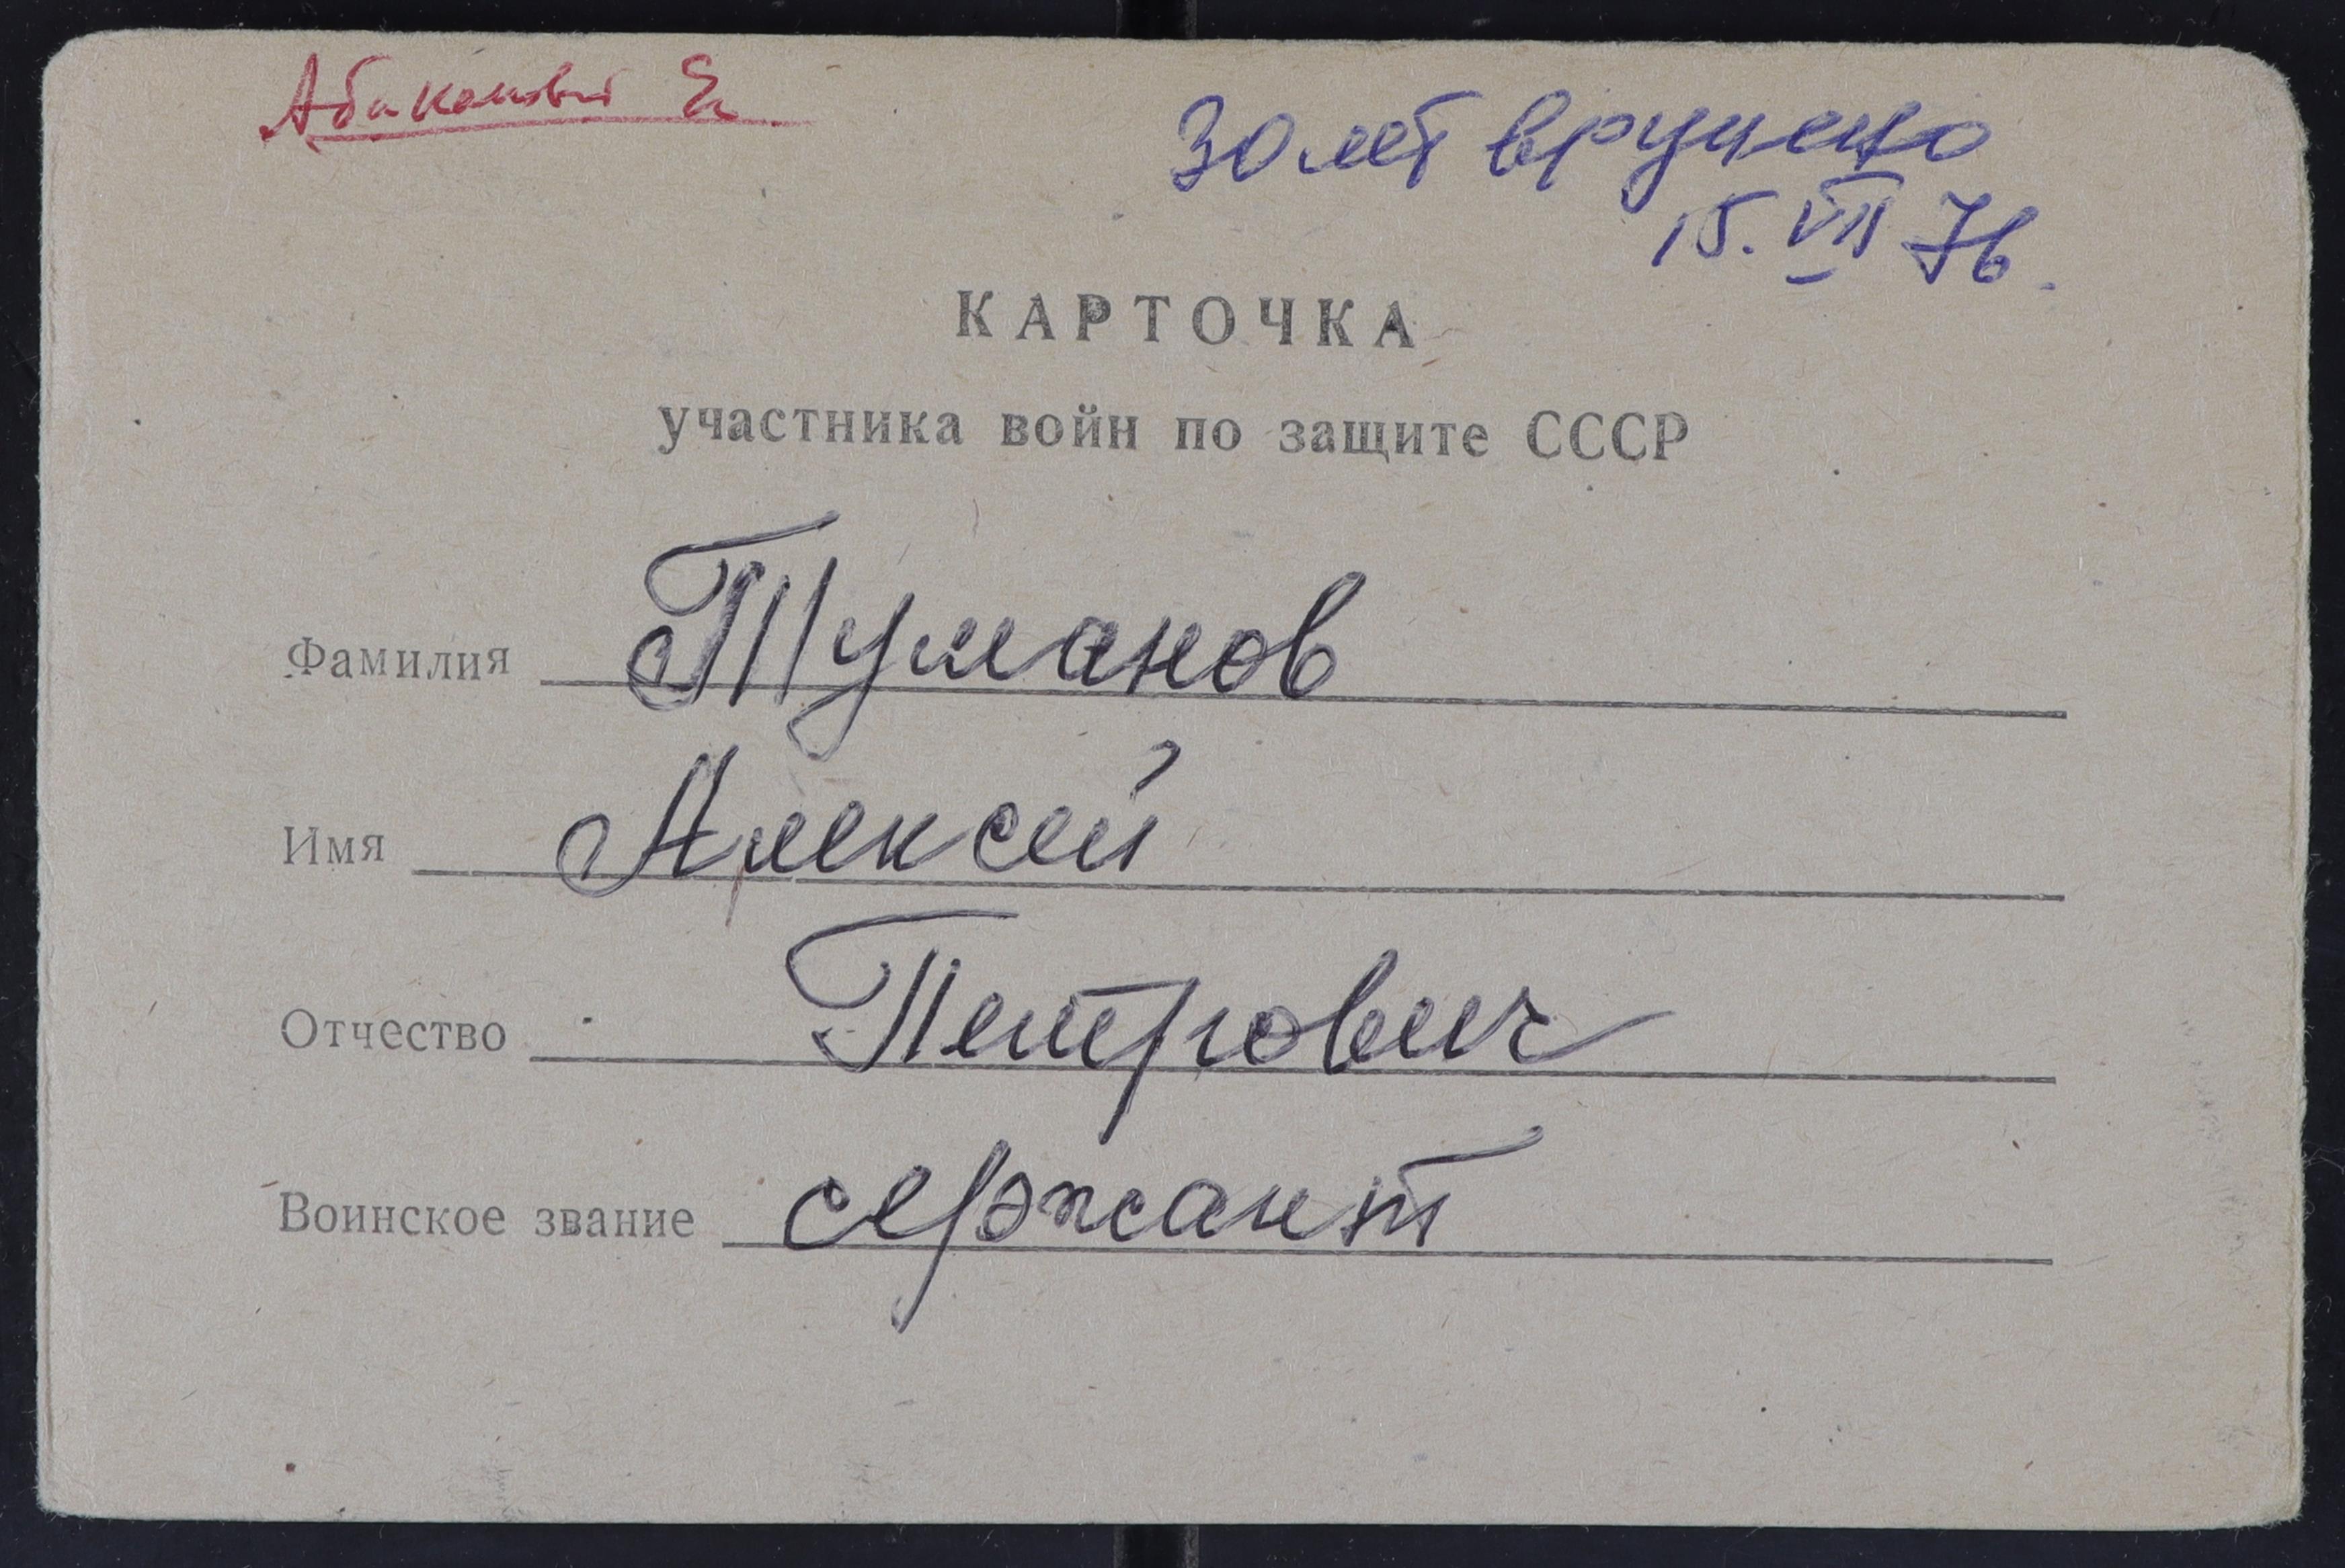 30 лет вручено
15. VII 76.
КАРТОЧКА
участника войн по защите СССР
Фамилия Туманов
Имя Алексей
Отчество Петрович
Воинское звание сержант